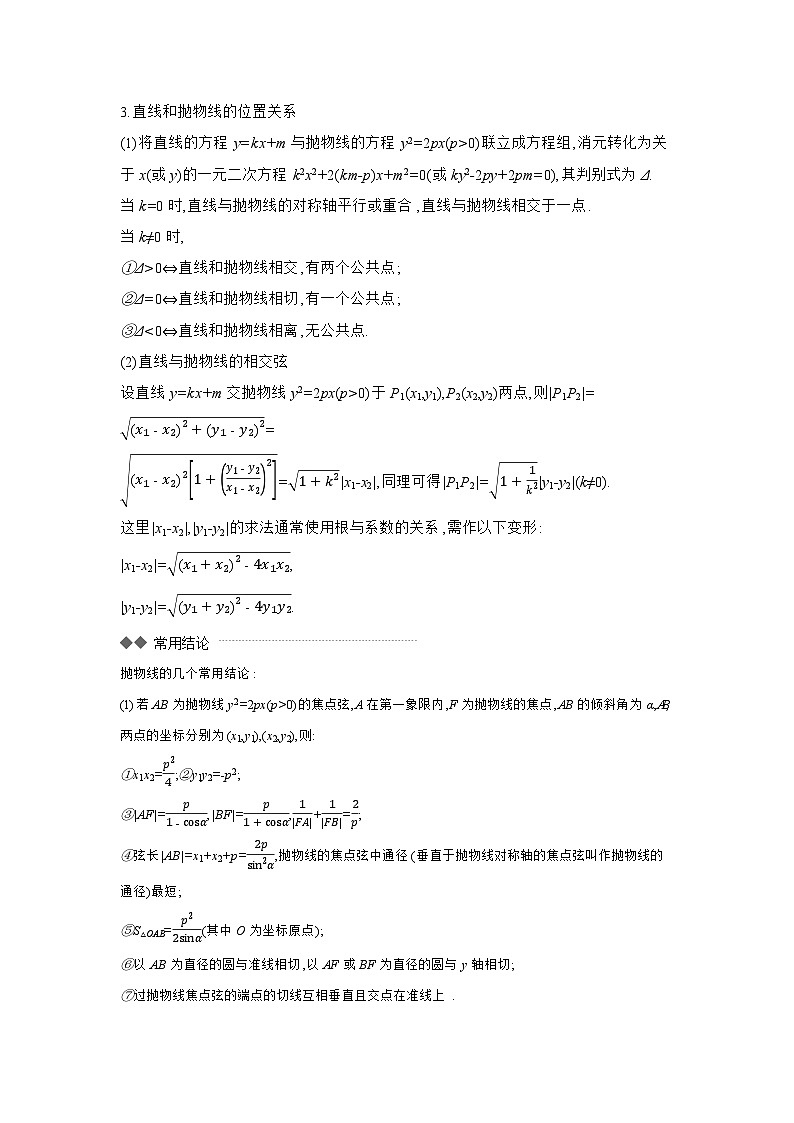 3.直线和抛物线的位置关系
(1)将直线的方程 y=kx+m 与抛物线的方程 y²=2px(p>0)联立成方程组,消元转化为关
于 x(或 y)的一元二次方程 k²x²+2(km-p)x+m²=0(或 ky²-2py+2pm=0),其判别式为 Δ.
当 k=0 时,直线与抛物线的对称轴平行或重合,直线与抛物线相交于一点.
当 k≠0 时,
①Δ>0⇔直线和抛物线相交,有两个公共点;
②Δ=0⇔直线和抛物线相切,有一个公共点;
③Δ<0⇔直线和抛物线相离,无公共点.
(2)直线与抛物线的相交弦
设直线 y=kx+m 交抛物线 y²=2px(p>0)于 P₁(x₁,y₁),P₂(x₂,y₂)两点,则|P₁P₂|=
√((x₁-x₂)²+(y₁-y₂)²)=
√((x₁-x₂)²[1+((y₁-y₂)/(x₁-x₂))²])=√(1+k²)|x₁-x₂|,同理可得|P₁P₂|=√(1+1/k²)|y₁-y₂|(k≠0).
这里|x₁-x₂|,|y₁-y₂|的求法通常使用根与系数的关系,需作以下变形:
|x₁-x₂|=√((x₁+x₂)²-4x₁x₂),
|y₁-y₂|=√((y₁+y₂)²-4y₁y₂).
◆◆ 常用结论
抛物线的几个常用结论:
(1)若 AB 为抛物线 y²=2px(p>0)的焦点弦,A 在第一象限内,F 为抛物线的焦点,AB 的倾斜角为 α,A,B
两点的坐标分别为(x₁,y₁),(x₂,y₂),则:
①x₁x₂=p²/4;②y₁y₂=-p²;
③|AF|=p/(1-cosα),|BF|=p/(1+cosα),1/|FA|+1/|FB|=2/p;
④弦长|AB|=x₁+x₂+p=2p/sin²α,抛物线的焦点弦中通径(垂直于抛物线对称轴的焦点弦叫作抛物线的
通径)最短;
⑤S△OAB=p²/(2sinα)(其中 O 为坐标原点);
⑥以 AB 为直径的圆与准线相切,以 AF 或 BF 为直径的圆与 y 轴相切;
⑦过抛物线焦点弦的端点的切线互相垂直且交点在准线上.